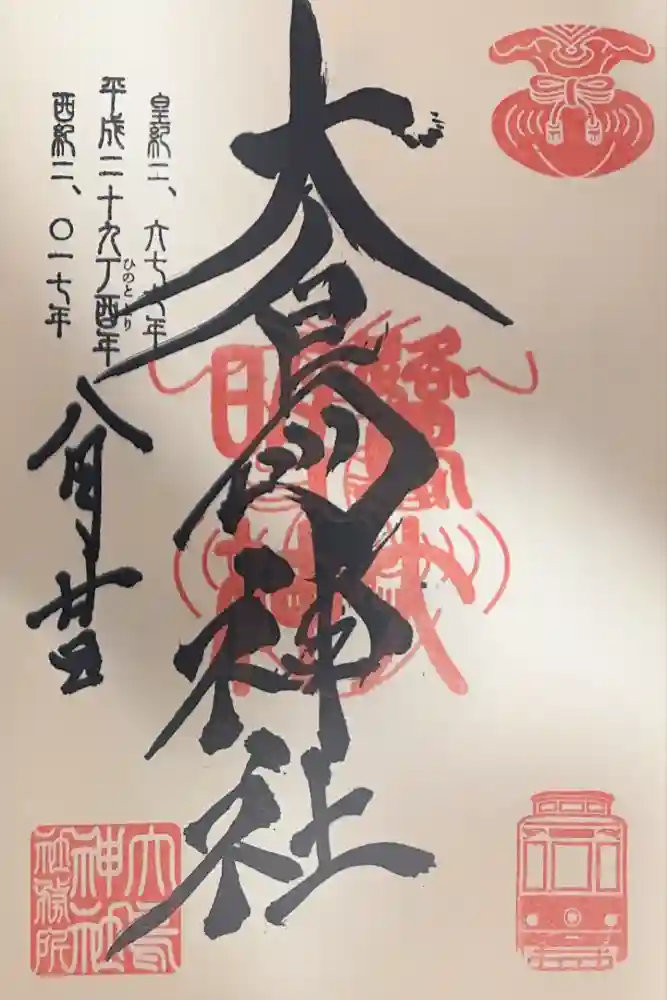 大鳥神社
皇紀二、六七七年
平成二十九丁酉年
ひのととり
西紀二、〇一七年
八月廿日
大鳥
神社
社務所